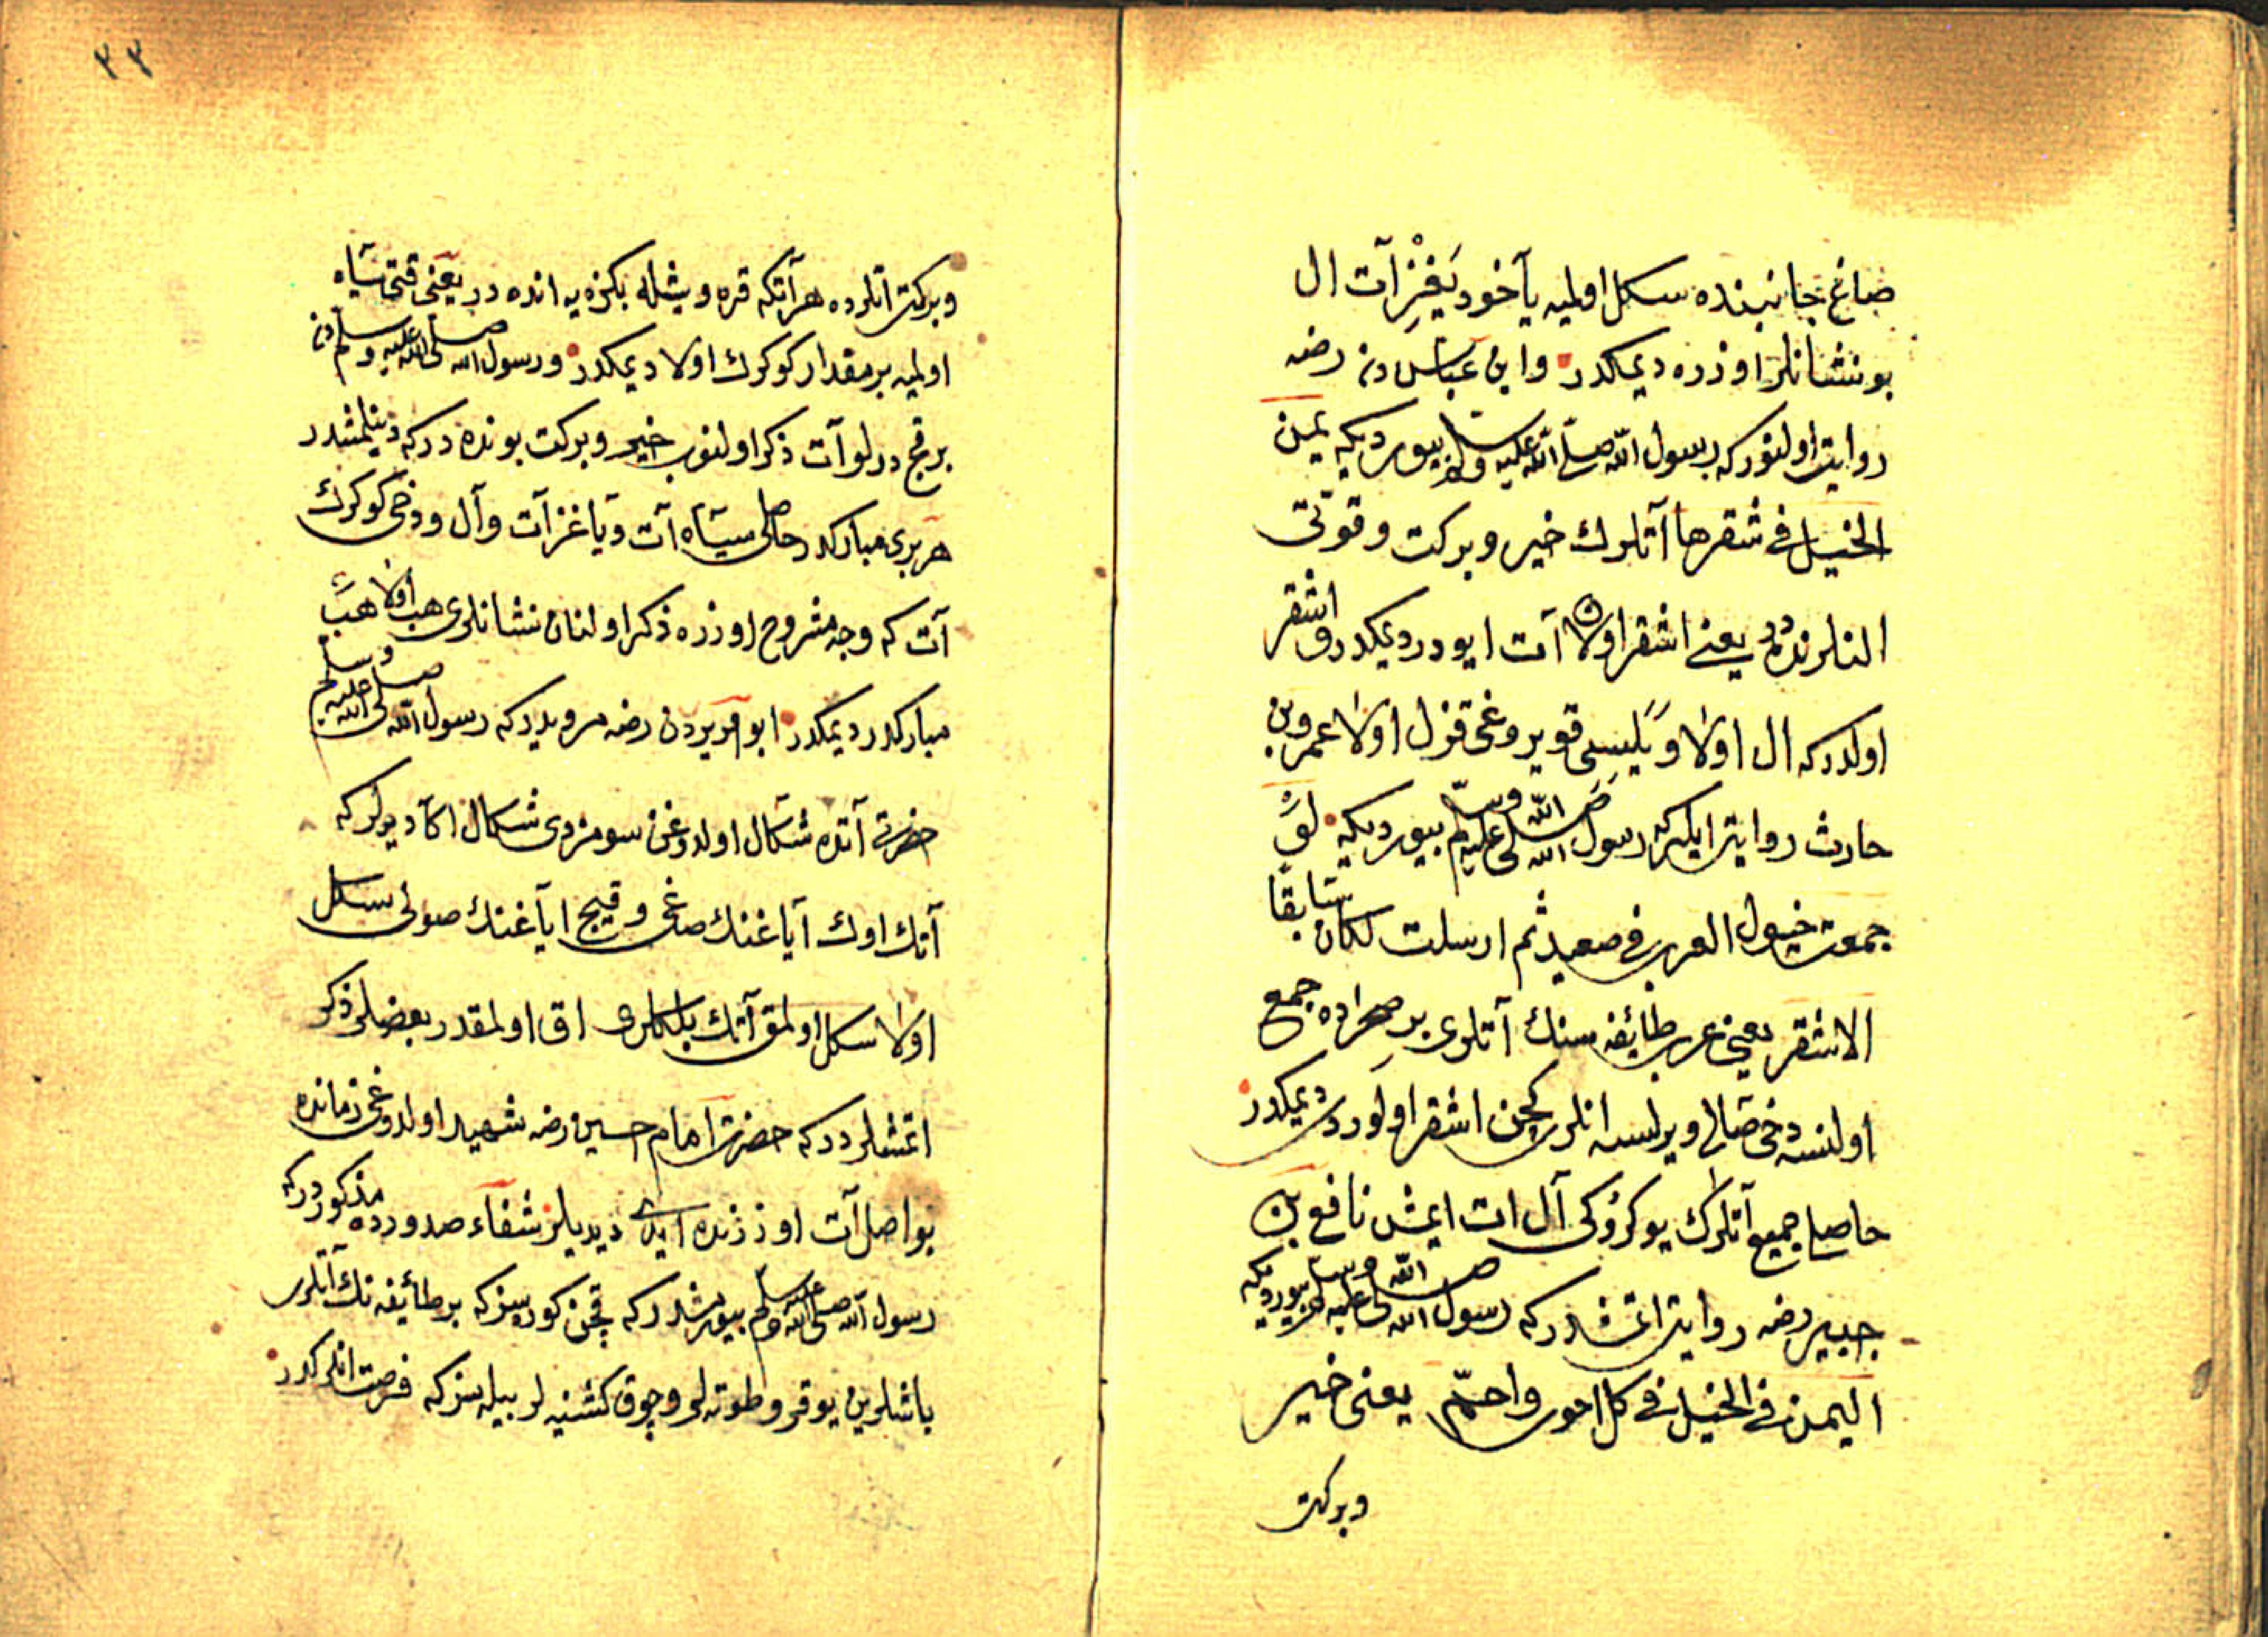 صاغ جانبنده سكل اولميه ياخود يَغْزِ آت ال
بو نشانلر اوزره ديمكدر وابن عباس دن رضه
روايت اولنور كه رسول الله صلى الله عليه وسلم بيورديكه يمن
الخيل فى شقرها آتلرك خير وبركت وقوتى
النلرنده در يعنى اشقر اولا آت ايودر ديمكدر واشقر
اولدر كه ال اولا ويليسى قويروغى قزل اولا عمرو بن
حارث روايت ايلركه رسول الله صلى الله عليه وسلم بيورديكه لَو
جمعت خيول العرب فى صعيد ثم ارسلت لكان سابقا
الاشقر يعنى عرب طائفه سنك آتلرى بر صحراده جمع
اولنسه دخى صالى ويرلسه انلرى كچن اشقر اولوردى ديمكدر
حاصلى جميع آتلرك يوكروكى آل ات ايمش نافع بن
جبير رضه روايت اتمشدر كه رسول الله صلى الله عليه وسلم بيورديكه
اليمن فى الخيل فى كل احوى واحمّ يعنى خير
وبركت
٣٣
وبركت اتلرده هر آتكه قره ويشله بكزه يه انده در يعنى قتى سياه
اولميه بر مقدار كوكرك اولا ديمكدر ورسول الله صلى الله عليه وسلم دن
بر قچ درلو آت ذكر اولنوب خير وبركت بونده در كه دينلمشدر
هر برى مباركدر حاصلى سياه آت وياغز آت وآل ودخى كوكرك
آت كه وجه مشروح اوزره ذكر اولنان نشانلرى هب اولا هب
مباركدر ديمكدر ابو هريره دن رضه مرويدر كه رسول الله صلى الله عليه وسلم
حضرتى آتده شكال اولدوغن سومزدى شكال اكا ديرلر كه
آتك اوك آياغنك صاغى وقيچ اياغنك صولى سكل
اولا سكل اولمق آتك بلكلرى اق اولمقدر بعضلر ذكر
اتمشلردر كه حضرت امام حسين رضه شهيد اولدوغى زمانده
بو اصل آت اوززنده ايدى ديديلر شفاء صدورده مذكوردر كه
رسول الله صلى الله عليه وسلم بيورمشدر كه قچن كورسز كه بر طائفه نك آتلرى
باشلرين يوقرو طوته لر وچوق كشنيه لر بيله سز كه فرصت انلركدر